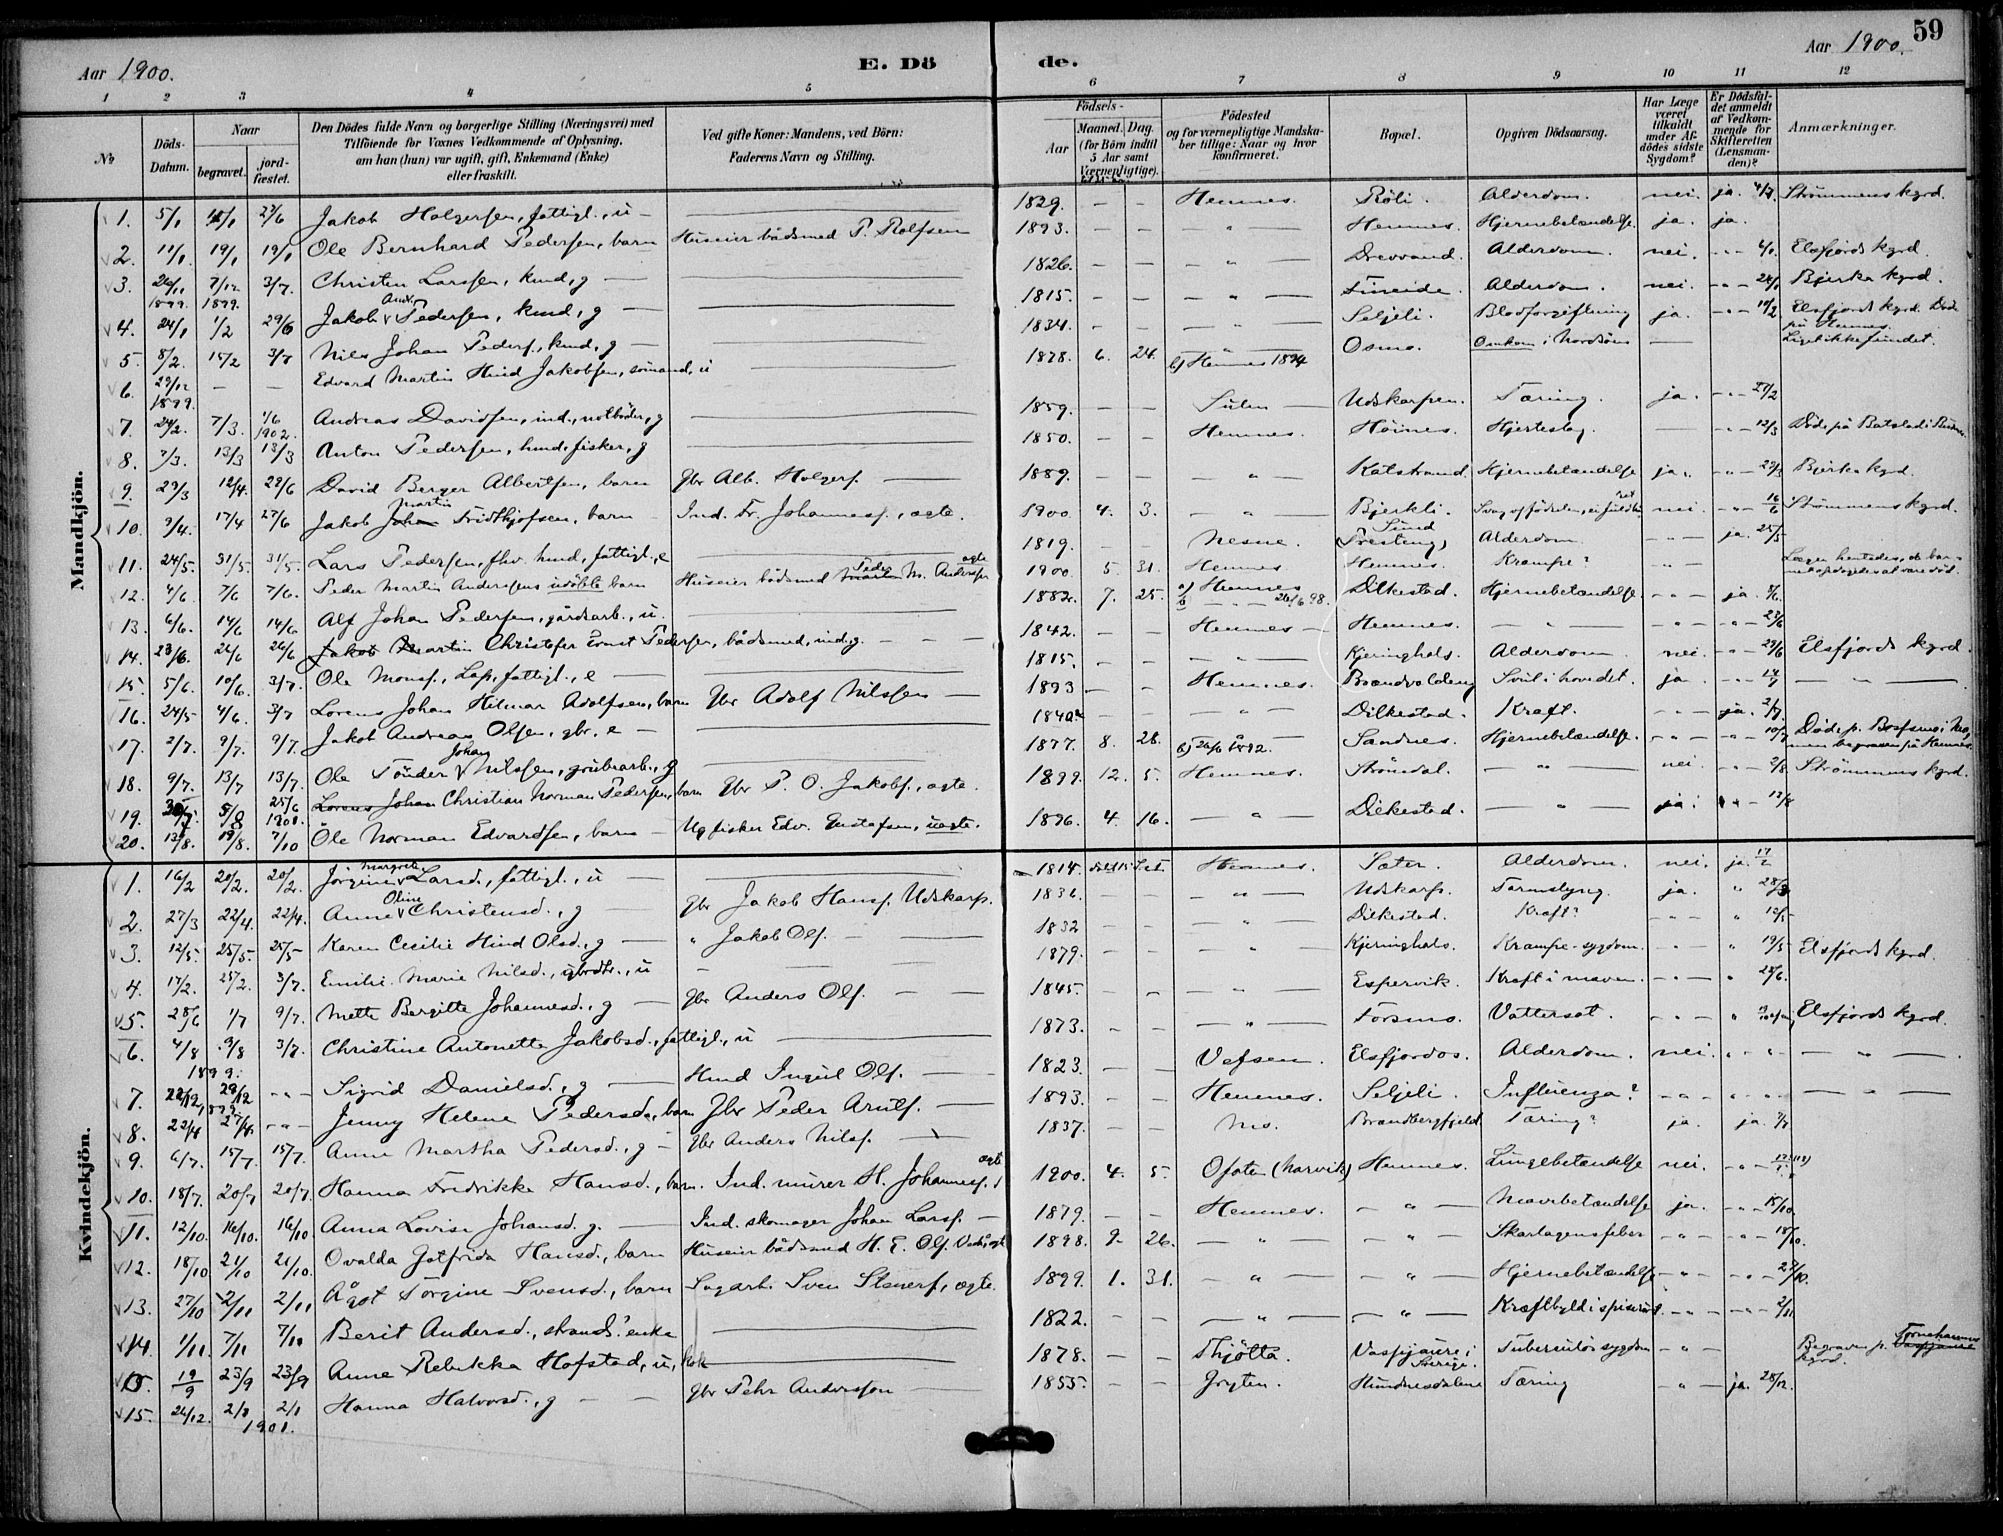 59
Aar 1900.
E. Dö de.
Aar 1900.
1 2 3 4 5 6 7 8 9 10 11 12
No
Döds-Datum.
Naar
begravet. jordfæstet.
Den Dödes fulde Navn og borgerlige Stilling (Næringsvei) med Tilföiende for Voxnes Vedkommende af Oplysning, om han (hun) var ugift, gift, Enkemand (Enke) eller fraskilt.
Ved gifte Koner: Mandens, ved Börn: Faderens Navn og Stilling.
Födsels-
Aar
Maaned. Dag.
(for Börn indtil 5 Aar samt Værnepligtige).
Födested og for værnepligtige Mandskaber tillige: Naar og hvor konfirmeret.
Bopæl.
Opgiven Dödsaarsag.
Har Læge været tilkaldt under Afdödes sidste Sygdom?
Er Dödsfaldet anmeldt af Vedkommende for Skifteretten (Lensmanden)?
Anmærkninger.
Mandkjön.
1. 5/1 23/6 Jakob Holgersen, fattigl., u — 1829. — — Hemnes. Röli. Alderdom. nei. ja. Strømmens kgrd.
2. 11/1 19/1 19/1 Ole Bernhard Pedersen, barn Huseier bådsmed P. Rolfsen 1893. — — " Hemnes. Hjernebetændelse. ja. ja.
3. 26/11 1899. 7/12 1899. 3/7. Christen Larssen, kmd, g — 1826. — — " Drevvand. Alderdom. nei. Elsfjords kgrd.
4. 24/1 1/2 29/6 Jakob And. Pedersen, kmd, g — 1815. — — " Fineide. Alderdom. nei. -"- Bjerka kgrd.
5 8/2. 15/2 3/7 Nils Johan Peders., kmd, g — 1834. — — " Seljeli. Blodforgiftning ja. -"- Elsfjords kgrd. Död på Hemnes.
6. 29/12 1899. — — Edvard Martin Hind Jakobsen, sömand, u 1878. 6. 24. b) Hemnes 1894 Osmo. Omkom i Nordsöen — Liget ikke fundet.
7. 24/2. 7/3. 1/6 1902. Andreas Davidsen, ind., notböter, g 1859. — — Sulen — Udskarpen. Tæring. ja. -"- 27/2
8. 7/3. 13/3 13/3 Anton Pedersen, hmd, fisker, g 1850. — — Hemnes. Höines. Hjerteslag. — -"- 12/3
9 29/3 12/4. 28/6 David Berger Albertsen, barn Gbr Alb. Holgers. — 1889. — — " Katstrand. Hjernebetændelse ja. -"- 29/3 Bjerka kgrd.
10. 9/4. 17/4 27/6 Jakob Martin Fridthjofsen, barn Ind. Fr. Johannes., ægte. 1900. 4. 3. " Bjerkli. nei. -"- Strømmens kgrd.
11. 24/5. 31/5. 31/5. Lars Pedersen, fhv. hmd, fattigl., e 1819. — — Nesne. Alderdom -"- ja. 25/5
12. 4/6 7/6 7/6. Peder Martin Andersens udöbte barn Huseier bådsmed Peder M. Anderssen ægte 1900 5 31. Hemnes. Hemnes. Krampe? -"-
13. 6/6. 14/6 14/6 Alf Johan Pedersen, gårdsarb., u. — 1882. 7. 25. a) Hemnes b) 26/6 98. Dilkestad. Hjernebetændelse. -"- ja.
14. 23/6. 26/6 26/6 Christofer Ernst Pedersen, bådsmed, ind., g. 1842. — — Hemnes — Hemnes. — " — -"- -"- 23/6
15. 5/6. 10/6. 3/7. Ole Mons., Lap, fattigl., e — 1815. — — " Kjeringhals. Alderdom nei. -"- 29/6 Elsfjords kgrd.
16. 24/5 4/6. 3/7 Lorens Johan Hilmar Adolfsen, barn Gbr Adolf Nilssen — 1893 — — Hemnes. Svul i hovedet. ja. -"- — " —
17. 2/7. 9/7. 9/7. Jakob Andreas Olsen, gbr. e — 1840. — — " Dilkestad. Kræft. -"- ja. 2/7.
18. 9/7. 13/7 13/7. Ole Tönder Johan Nilssen, grubearb., g 1877. 8. 28. Sandnes. Hjernebetændelse. -"- -"- 10/7 Döde p. Bosfsmo i Mo, men begraven på Hemnes.
19. 5/8 25/6 1901. Johan Christian Norman Pedersen, barn Gbr P. O. Jakobs., ægte. 1899. 12. 5. Hemnes. Strömdal. — " — nei. -"- 2/8 Strømmens kgrd.
20. 13/8. 19/8. 7/10 Ole Norman Edvardsen, barn — Ug fisker Edv. Gustafsen, uægte. 1896. 4. 16. — " — Dilkestad. — " — ja. -"- 13/8
Kvindekjön.
1. 16/2 20/2. 20/2. Jörgine Margrete Larsd., fattigl., u — 1814. Hemnes. Sæter. Alderdom. nei. ja. 17/2
2. 27/3 22/4. 22/4. Anne Oline Christensd., g — Gbr Jakob Hans. Udskarp. 1836. — — " Udskarp. ja. " 28/3
3. 12/5. 25/5. 25/5 Karen Cecilie Hind Olsd., g — " Jakob Ols. — 1832 — — " Dilkestad. Kræft? -"- " 12/5
4. 17/2. 25/2. 3/7. Emilie Marie Nilsd., gbrdtr., u — 1879. — — " Kjeringhals. Krampe-sygdom. -"- " 19/5 Elsfjords kgrd.
5. 28/6 1/7 9/7. Mette Bergitte Johannesd., g — Gbr Anders Ols. — 1845. — — " Espervik. Kræft i maven. -"- " 28/6.
6. 4/8 9/8 3/7. Christine Antonette Jakobsd., fattigl., u — 1873. — — " Forsmo. Vattersot. -"- " Elsfjords kgrd.
7. 1899. 22/12 29/12 -"- Sigrid Danielsd., g — Hmd Ingul Ols. — 1823. — — Vefsen. Elsfjordos. Alderdom. nei. -"- — " —
8. 22/4 27/4. -"- Jenny Helene Pedersd., barn Gbr Peder Aruts. — 1893. — — Hemnes. Seljeli. Influenza? -"- -"- — " —
9. 6/7. 15/7. 15/7. Anne Martha Pedersd., g — Gbr Anders Nils. — 1837. — — Mo. Brandbergfjeld. Tæring? ja. ja.
10. 18/7. 20/7 20/7. Hanna Fredrikke Hansd., barn. Ind. murer H. Johannes., ægte 1900. 4. 5. Ofoten (Narvik) Hemnes. Lungebetændelse nei. -"-
11. 12/10. 16/10. 16/10 Anna Lovise Johansd. g. — Ind. skomager Johan Lars. — 1879. — — Hemnes. — " — Mavebetændelse ja. -"- 15/10
12. 18/10 21/10 21/10. Ovalda Gotfrida Hansd., barn Huseier bådsmed H. E. Ols. 1898. 9. 26. — " — — " — Skarlagensfeber -"- -"- 18/10.
13. 27/10 2/11 2/11 Ågot Jörgine Svensd., barn Sagarb. Sven Steners., ægte. 1899. 1. 31. — " — — " — Hjernebetændelse -"- -"- 27/10.
14. 1/11. 7/11 7/11 Berit Andersd., strands. enke — 1822. — — " — " — Kræftbyld i spiserör. -"- -"- 2/11
15. 19/9 23/9 23/9 Anne Rebekka Hofstad, u, kok 1878. — — Thjötta. Vaspjaure i Sverige. Tuberculös sygdom -"- — Begraven p. Tornehamns kgrd.
15. 24/12. 2/1 2/1 1901. Hanna Halvorsd., g — Gbr Pehr Andersson — 1855. — — Gryten. Hundnesdalene Tæring -"- ja. 28/12.